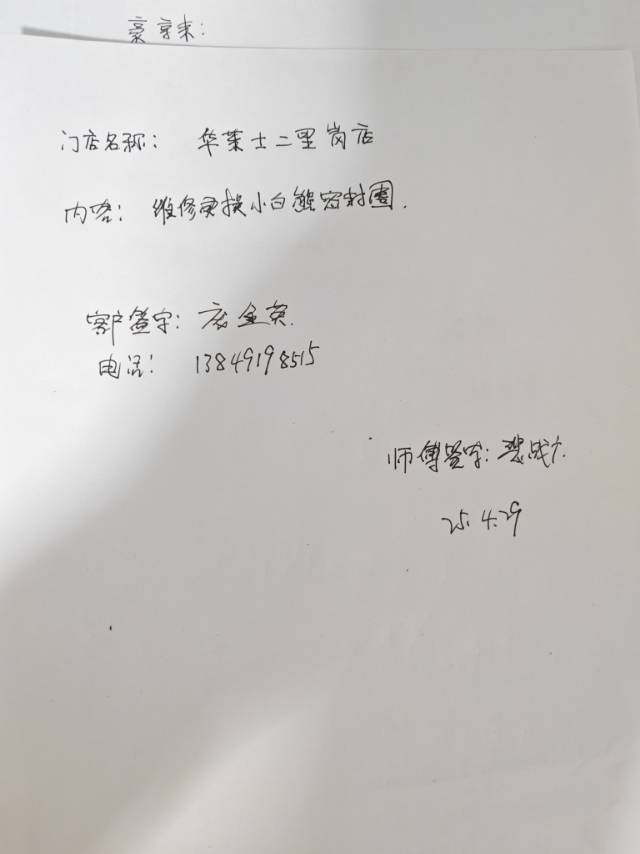 门店名称： 华莱士二里岗店
内容： 维修更换小白熊密封圈.
客户签字： 金英.
电话： 13849198515
师傅签字：
25.4.29